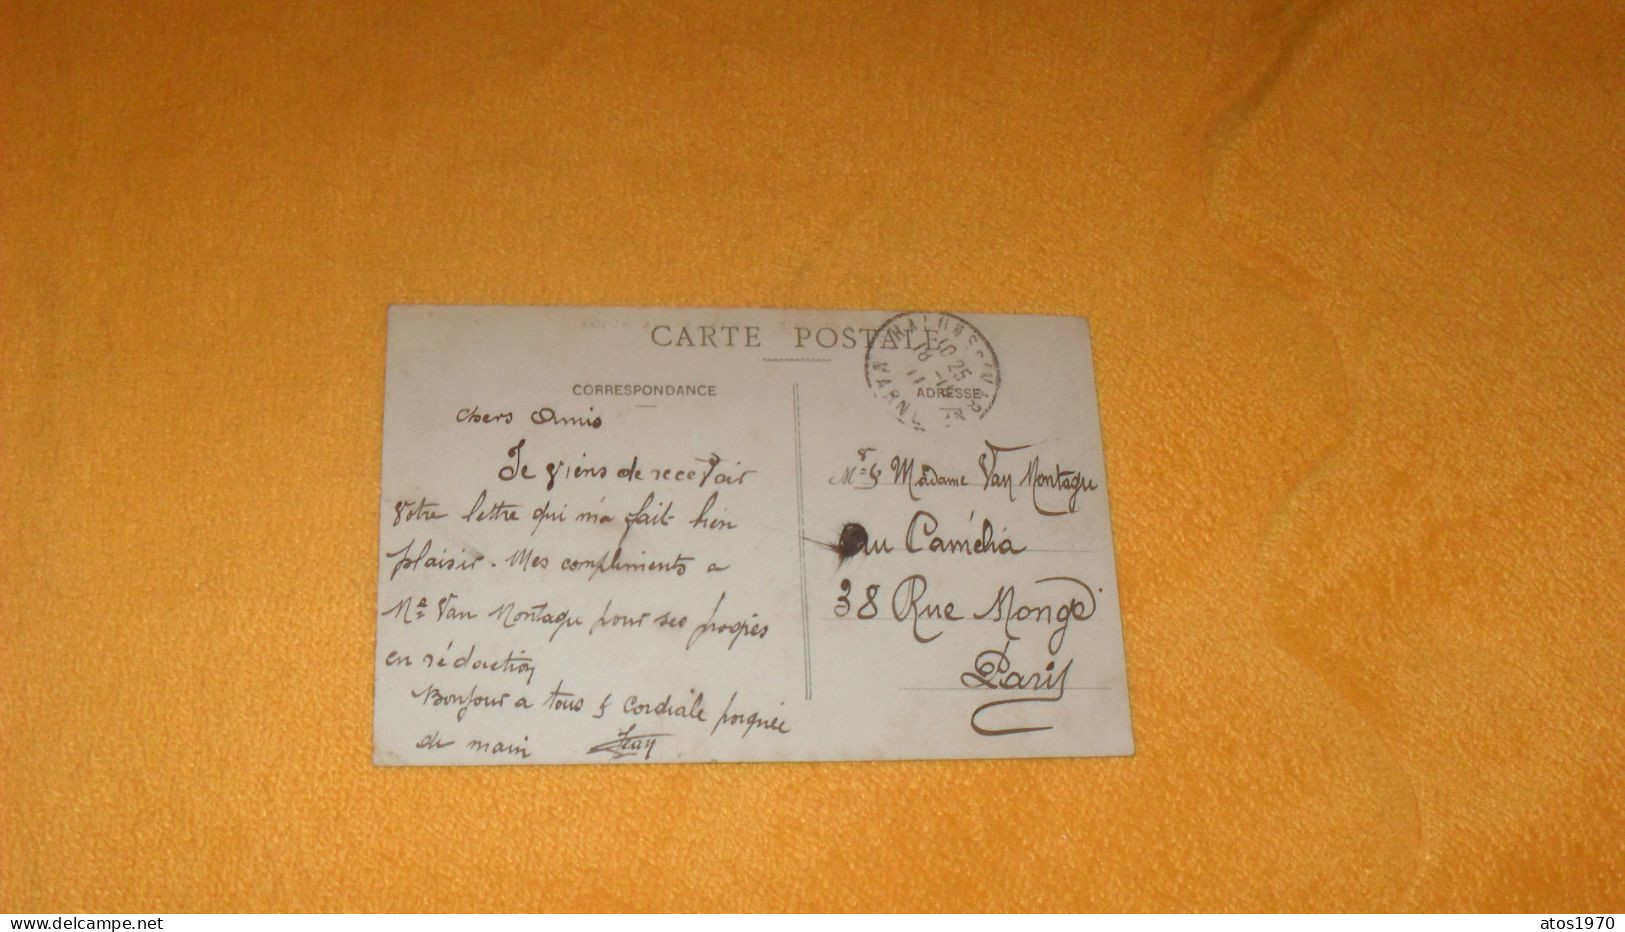 CARTE POSTALE
CORRESPONDANCE
Chers Amis
Je viens de recevoir
votre lettre qui m'a fait bien
plaisir. Mes compliments a
Me Van Montagu pour ses progrès
en rédaction
Bonjour a tous & Cordiale poignée
de main Jean
CHALONS-SUR-
MARNE
10 25
18 - 11
11
ADRESSE
Mr & Madame Van Montagu
au Camélia
38 Rue Monge
Paris
delcampe.net
atos1970